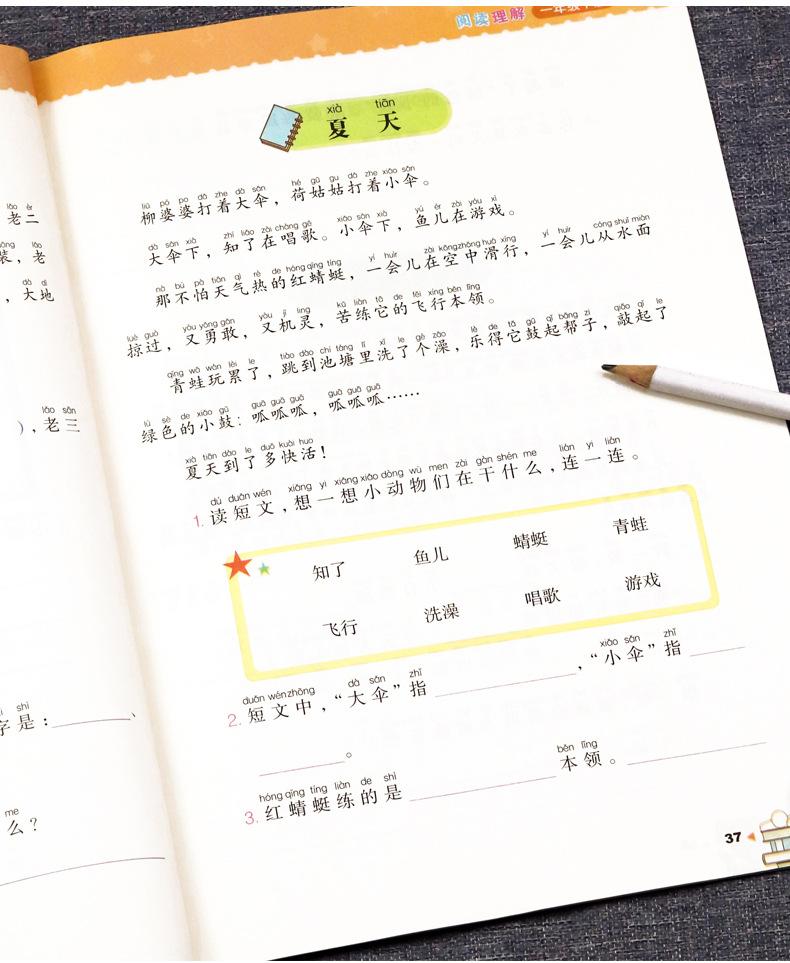 阅读理解
一年级
lǎo èr
老二
装，老
dà dì
，大地
lǎo sān
），老三
shì
字是：
me
么？
xià tiān
夏天
liǔ pó po dǎ zhe dà sǎn hé gū gu dǎ zhe xiǎo sǎn
柳婆婆打着大伞，荷姑姑打着小伞。
dà sǎn xià zhī liǎo zài chàng gē xiǎo sǎn xià yú ér zài yóu xì
大伞下，知了在唱歌。小伞下，鱼儿在游戏。
nà bú pà tiān qì rè de hóng qīng tíng yí huìr zài kōng zhōng huá xíng yí huìr cóng shuǐ miàn
那不怕天气热的红蜻蜓，一会儿在空中滑行，一会儿从水面
lüè guò yòu yǒng gǎn yòu jī líng kǔ liàn tā de fēi xíng běn lǐng
掠过，又勇敢，又机灵，苦练它的飞行本领。
qīng wā wán lèi le tiào dào chí táng lǐ xǐ le gè zǎo lè de tā gǔ qǐ bāng zi qiāo qǐ le
青蛙玩累了，跳到池塘里洗了个澡，乐得它鼓起帮子，敲起了
lǜ sè de xiǎo gǔ guā guā guā guā guā guā
绿色的小鼓：呱呱呱，呱呱呱……
xià tiān dào le duō kuài huo
夏天到了多快活！
dú duǎn wén xiǎng yi xiǎng xiǎo dòng wù men zài gàn shén me lián yi lián
1. 读短文，想一想小动物们在干什么，连一连。
知了 鱼儿 蜻蜓 青蛙
飞行 洗澡 唱歌 游戏
duǎn wén zhōng dà sǎn zhǐ xiǎo sǎn zhǐ
2. 短文中，“大伞”指____，“小伞”指____
____。
hóng qīng tíng liàn de shì běn lǐng
3. 红蜻蜓练的是____本领。____
37